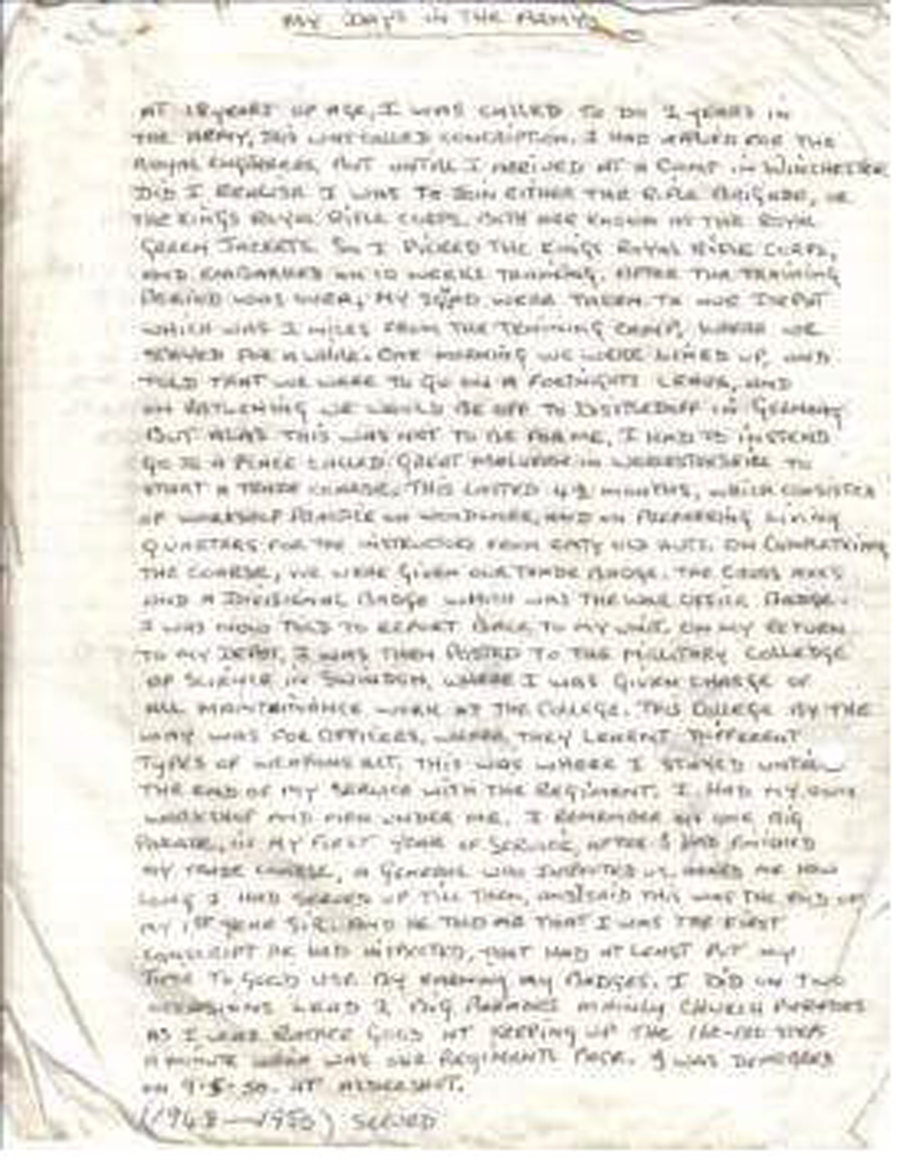 MY DAYS IN THE ARMY
AT 18 YEARS OF AGE, I WAS CALLED TO DO 2 YEARS IN
THE ARMY, THIS WAS CALLED CONSCRIPTION. I HAD ASKED FOR THE
ROYAL ENGINEERS, BUT UNTILL I ARRIVED AT A CAMP IN WINCHESTER
DID I REALISE I WAS TO JOIN EITHER THE RIFLE BRIGADE, OR
THE KINGS ROYAL RIFLE CORPS. BOTH ARE KNOWN AS THE ROYAL
GREEN JACKETS. SO I PICKED THE KINGS ROYAL RIFLE CORPS,
AND EMBARKED ON 10 WEEKS TRAINING. AFTER THE TRAINING
PERIOD WAS OVER, MY SQUAD WERE TAKEN TO OUR DEPOT
WHICH WAS 2 MILES FROM THE TRAINING CAMP, WHERE WE
STAYED FOR A WHILE. ONE MORNING WE WERE LINED UP, AND
TOLD THAT WE WERE TO GO ON A FORTNIGHTS LEAVE, AND
ON RETURNING WE WOULD BE OFF TO IN GERMANY
BUT ALAS THIS WAS NOT TO BE FOR ME, I HAD TO INSTEAD
GO TO A PLACE CALLED GREAT MALVERN IN TO
START A TRADE COURSE. THIS LASTED 4½ MONTHS, WHICH CONSISTED
OF WORKSHOP PRACTICE ON WOODWORK, AND ON PREPARING LIVING
QUARTERS FOR THE FROM OLD HUTS. ON COMPLETING
THE COARSE, WE WERE GIVEN OUR TRADE BADGE. THE CROSS AXES
AND A DIVISIONAL BADGE WHICH WAS THE WAR OFFICE BADGE.
I WAS NOW TOLD TO REPORT BACK TO MY UNIT. ON MY RETURN
TO MY DEPOT, I WAS THEN POSTED TO THE MILLITARY COLLEDGE
OF SCIENCE IN SWINDON, WHERE I WAS GIVEN CHARGE OF
ALL WORK AT THE COLLEGE. THIS COLLEGE BY THE
WAY WAS FOR OFFICERS, WHERE THEY LEARNT DIFFERENT
TYPES OF WEAPONS ECT, THIS WAS WHERE I STAYED UNTILL
THE END OF MY SERVICE WITH THE REGIMENT. I HAD MY OWN
WORKSHOP AND MEN UNDER ME. I REMEMBER ON ONE BIG
PARADE, IN MY FIRST YEAR OF SERVICE, AFTER I HAD FINISHED
MY TRADE COURSE, A GENERAL WHO INSPECTED US, ASKED ME HOW
LONG I HAD SERVED UP TILL THEN, AND I SAID THIS WAS THE END OF
MY 1ST YEAR SIR. AND HE TOLD ME THAT I WAS THE FIRST
CONSCRIPT HE HAD INSPECTED, THAT HAD AT LEAST PUT MY
TIME TO GOOD USE BY EARNING MY BADGES. I DID ON TWO
OCCASIONS LEAD 2 BIG PARADES MAINLY CHURCH PARADES
AS I WAS RATHER GOOD AT KEEPING UP THE STEPS
A MINUTE WHICH WAS OUR REGIMENTS PACE. I WAS DEMOBBED
ON AT ALDERSHOT.
(1948—1950) SERVED